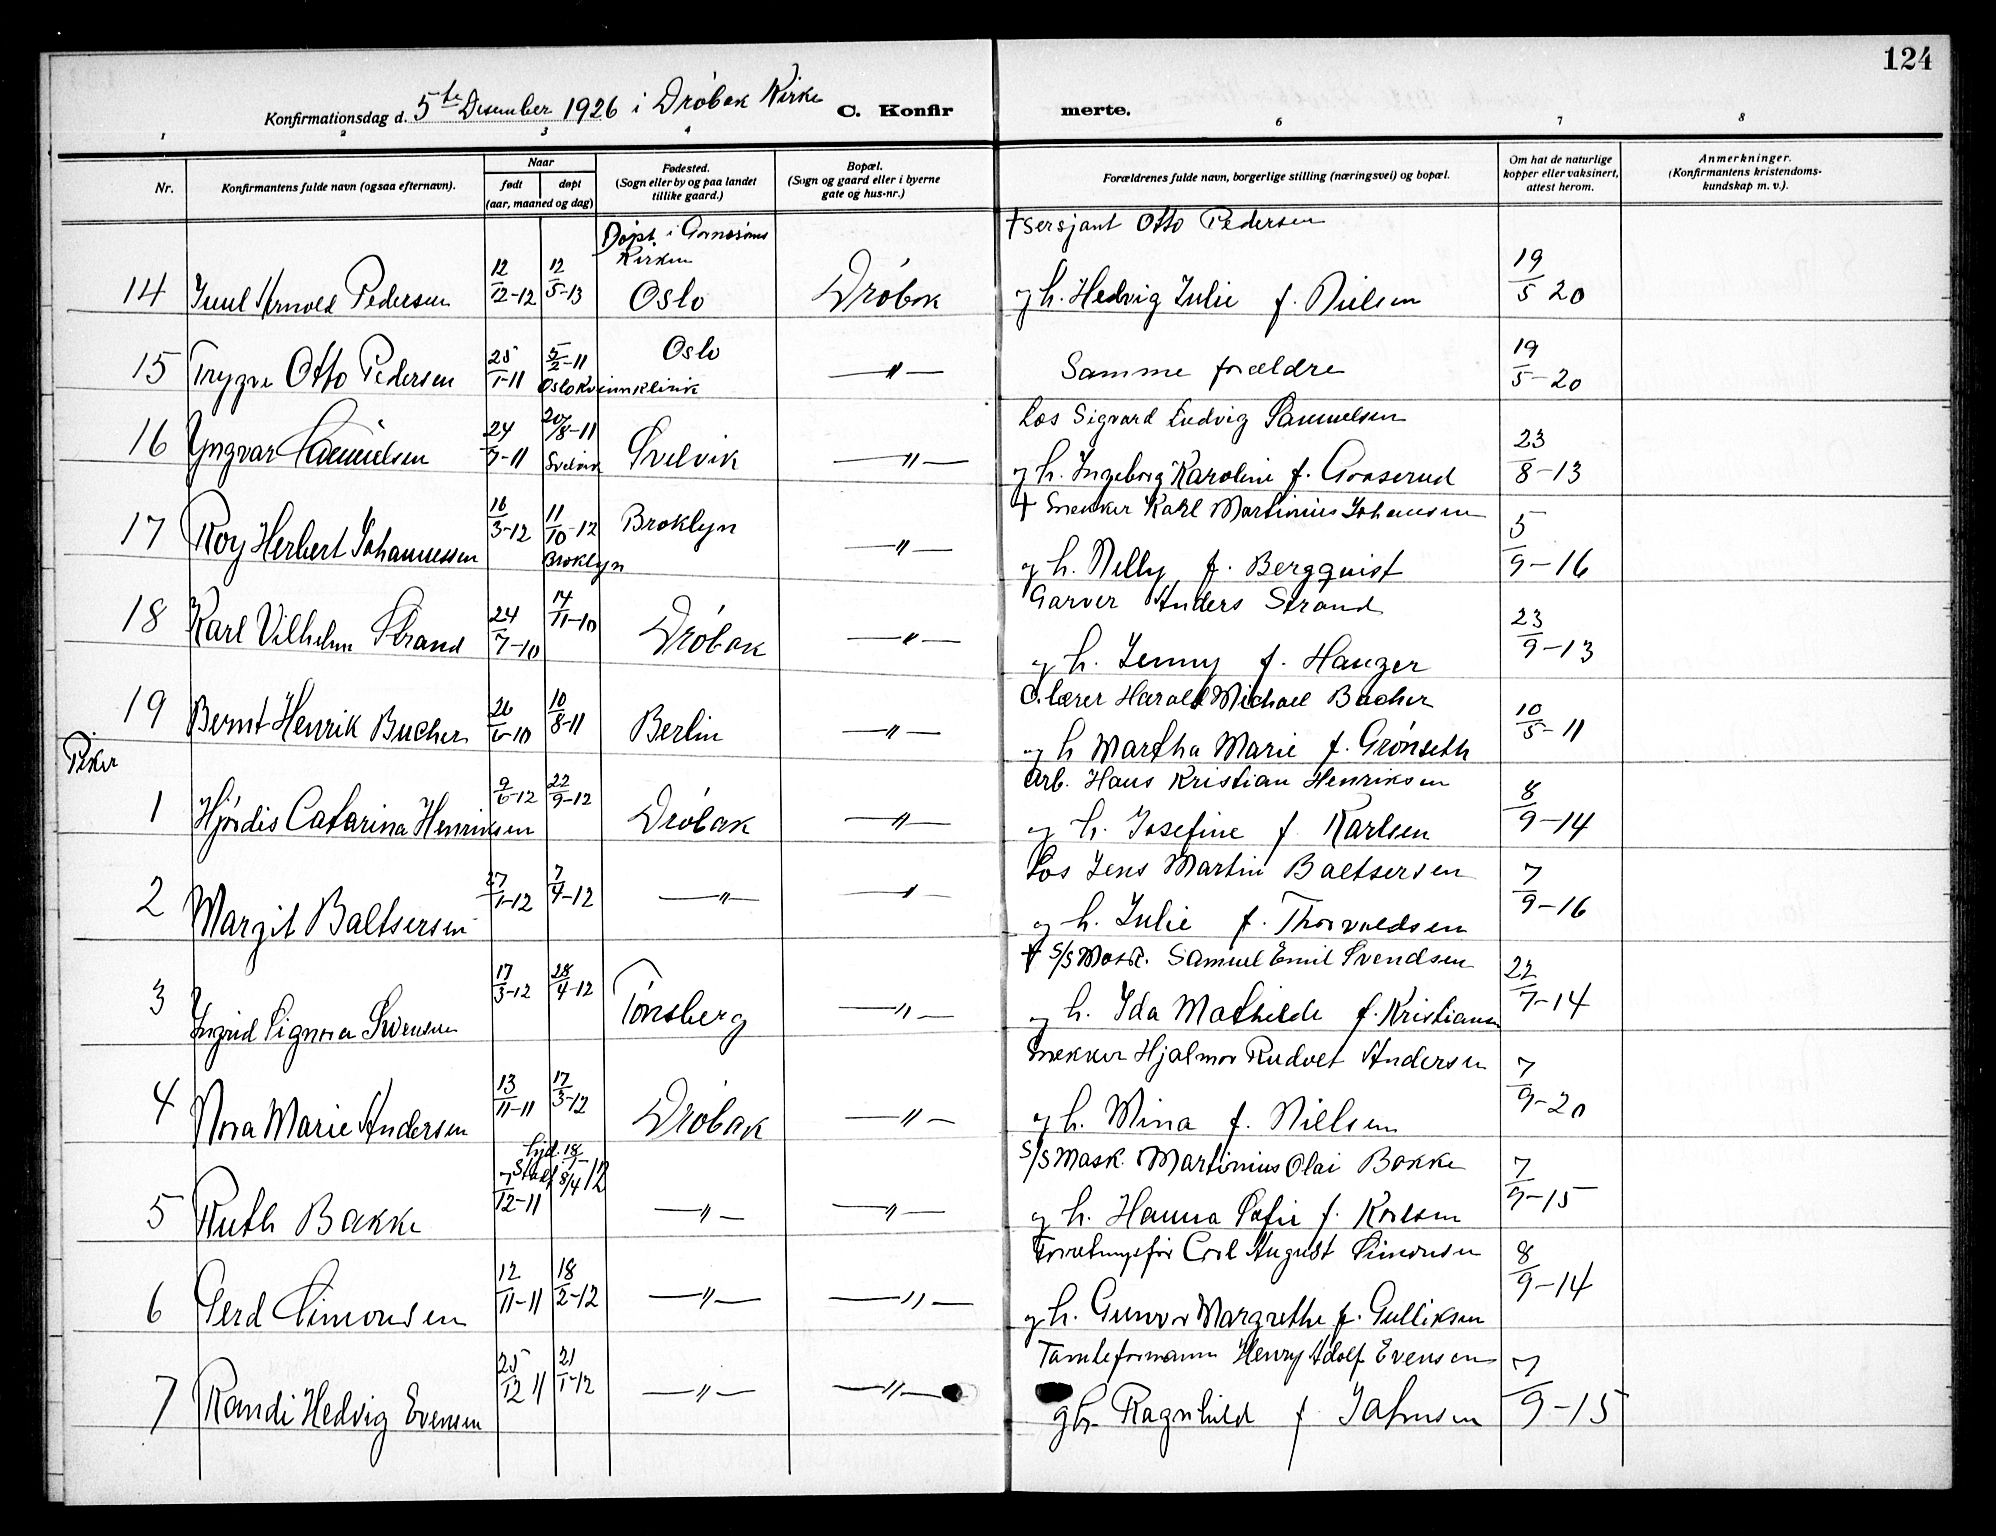 124
Konfirmationsdag d. 5te Desember 1926 i Drøbak Kirke C. Konfir merte.
1 2 3 4 6 7 8
Nr. Konfirmantens fulde navn (ogsaa efternavn). Naar født døpt (aar, maaned og dag) Fødested. (Sogn eller by og paa landet tillike gaard.) Bopæl. (Sogn og gaard eller i byerne gate og hus-nr.) Forældrenes fulde navn, borgerlige stilling (næringsvei) og bopæl. Om hat de naturlige kopper eller vaksinert, attest herom. Anmerkninger. (Konfirmantens kristendoms-kundskap m. v.).
Døpt i Kirken † Sersjant Otto Pedersen
14 Juul Arnold Pedersen 12/12-12 12/5-13 Oslo Drøbak og h. Hedvig Julie f. Nielsen 19/5 20
15 Trygve Otto Pedersen 25/1-11 5/2-11 Oslo Kvinneklinik Oslo —〃— Samme forældre 19/5-20
Los Sigvard Ludvig Samuelsen
16 Yngvar Samuelsen 24/7-11 20/8-11 Svelvik Svelvik —〃— og h. Ingeborg Karoline f. Graserud 23/8-13
† Snekker Karl Martinius Johansen
17 Roy Herbert Johannessen 16/3-12 11/10-12 Broklyn Broklyn —〃— og h. Nelly f. Bergquist 5/9-16
Garver Anders Strand
18 Karl Vilhelm Strand 24/7-10 14/11-10 Drøbak —〃— og h. Jenny f. Hauger 23/9-13
O.lærer Harald Michael Bucher
19 Bernt Henrik Bucher 26/6-10 10/8-11 Berlin —〃— og h Martha Marie f. Grønseth 10/5-11
Piker
Arb. Hans Kristian Henriksen
1 Hjørdis Catarina Henriksen 9/6-12 22/9-12 Drøbak —〃— og h. Josefine f. Karlsen 8/9-14
Los Jens Martin Baltsersen
2 Margit Baltsersen 27/1-12 7/4-12 —〃— —〃— og h. Julie f. Thorvaldsen 7/9-16
† S/S Mask. Samuel Emil Svendsen
3 Ingrid Signora Svensen 17/3-12 28/4-12 Tønsberg —〃— og h. Ida Mathilde f. Kristiansen 22/7-14
Snekker Hjalmar Rudolf Andersen
4 Nora Marie Andersen 13/11-11 17/3-12 Drøbak —〃— og h. Mina f. Nielsen 7/9-20
S/S Mask. Martinius Olai Bakke
5 Ruth Bakke /12-11 8/4 12 —〃— —〃— og h. Hanna Sofie f. Karlsen 7/9-15
Forretningsfør Carl August Simonsen
6 Gerd Simonsen 12/11-11 18/2-12 —〃— —〃— og h. Gunvor Margrethe f. Gulliksen 8/9-14
Tomteformann Henry Adolf Evensen
7 Randi Hedvig Evensen 25/12 11 21/1-12 —〃— —〃— og h. Ragnhild f. Jahnsen 7/9-15